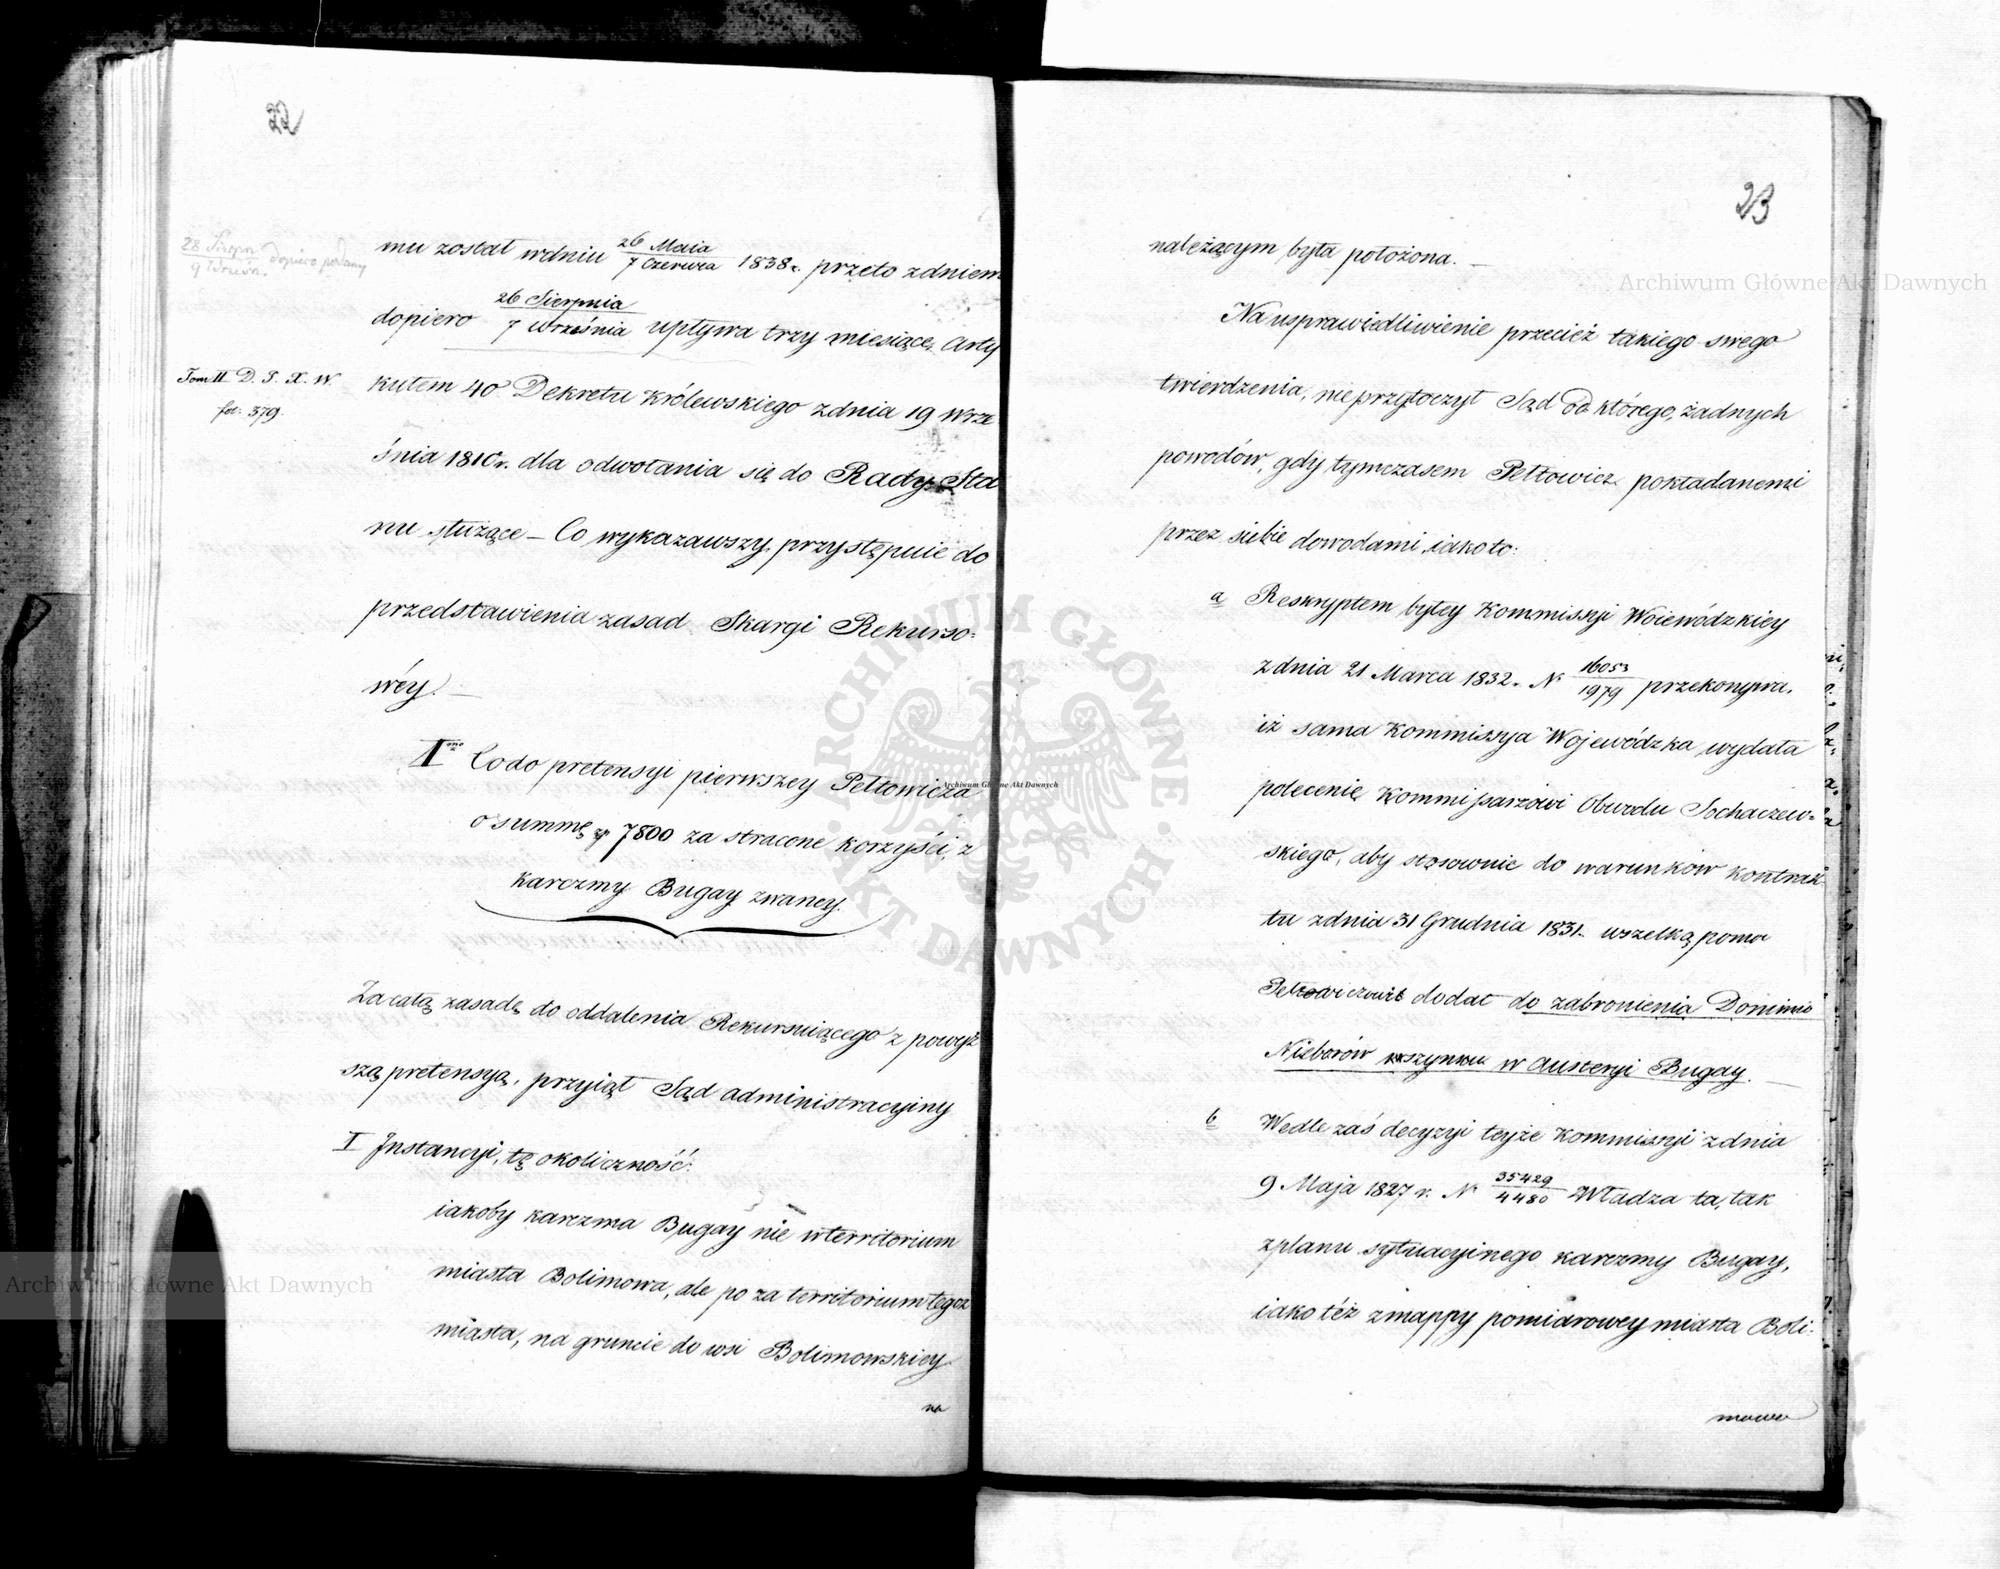 22
28 Sierpn
9 Wrześn. dopiero podany
mu został wdniu 26 Maia / 7 Czerwca 1838r. przeto zdniem
dopiero 26 Sierpnia / 7 Września upływa trzy miesiące, Arty
Tom II D. P. X. W.
fol: 379.
kułem 40 Dekretu Królewskiego zdnia 19 Wrze
śnia 1810r. dla odwołania się do Rady Sta
nu służące – Co wykazawszy, przystępuie do
przedstawienia zasad Skargi Rekurso=
wéy. –
Imo Codo pretensyi pierwszey Pełłowicza
o summę zp 7800 za stracone korzyści, z
karczmy Bugay zwaney.
Zacałą zasadę do oddalenia Rekursuiącego z powyż
szą pretensyą, przyiął Sąd administracyiny
I Instancyi, tę okoliczność:
iakoby karczma Bugay nie wterritorium
miasta Bolimowa, ale po za territorium tegoż
miasta, na gruncie do wsi Bolimowskiey
na
23
należącym była położona. –
Na usprawiedliwienie przecież takiego swego
twierdzenia, nieprzytoczył Sąd od którego, żadnych
powodów, gdy tymczasem Pełłowicz pokładanemi
przez siebie dowodami, iako to:
a Reskryptem byłey Kommissyi Woiewódzkiey
zdnia 21 Marca 1832. N 16053/1979 przekonywa.
iż sama Kommissya Wojewódzka wydała
polecenie Kommissarzowi Obwodu Sochaczew=
skiego, aby stosownie do warunków kontrak
tu zdnia 31 Grudnia 1831. wszelką pomoc
Pełłowiczowi dodał do zabronienia Dominio
Nieborów wyszynku w Austeryi Bugay. –
b Wedle zaś decyzyi teyże Kommissyi zdnia
9 Maja 1827 r. N 35429/4480 Władza ta, tak
zplanu sytuacyinego karczmy Bugay,
iako téż zmappy pomiarowey miasta Boli:
mowa
Archiwum Główne Akt Dawnych
Archiwum Główne Akt Dawnych
Archiwum Główne Akt Dawnych
ARCHIWUM GŁÓWNE AKT DAWNYCH